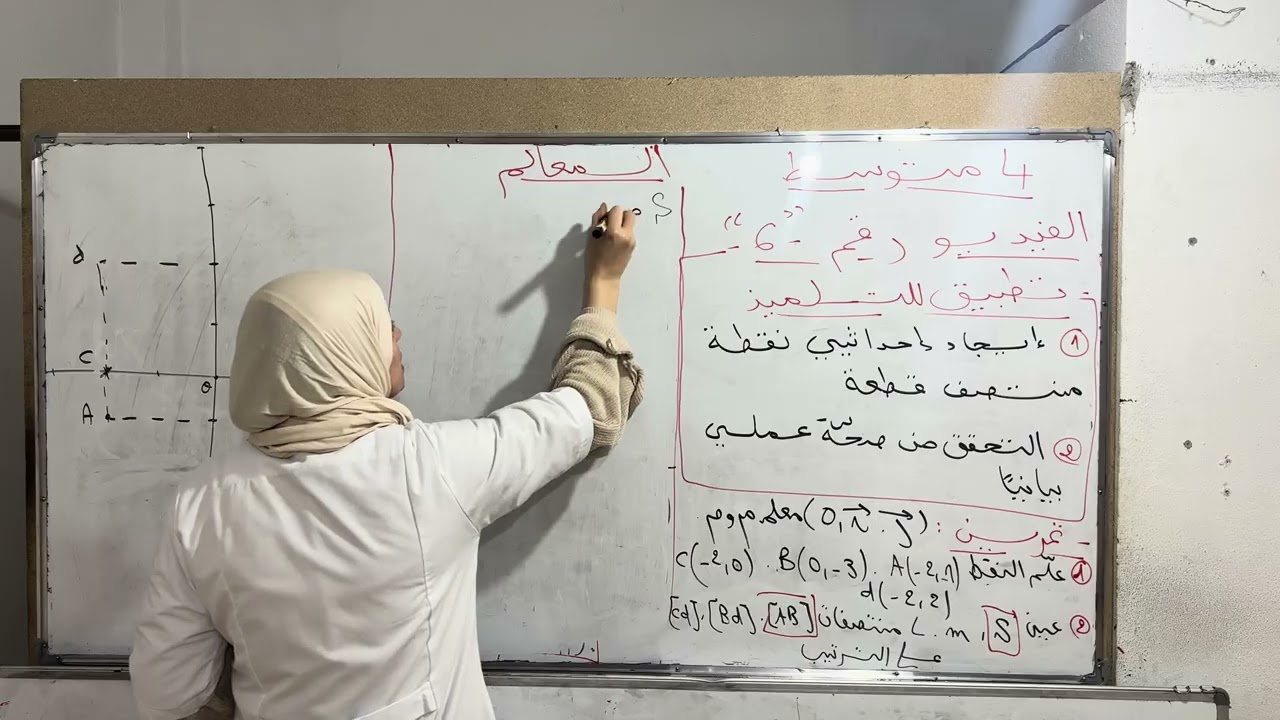 4 متوسط
الفيديو رقم "- 6"
- تطبيق للتلميذ
① إيجاد إحداثيي نقطة
منتصف قطعة
② التحقق من صحّة عملي
بيانيًا
- تمرين : (O, i, j) معلم م و م
① علّم النقط A(-2,-1) . B(0,-3) . C(-2,0)
d(-2,2)
② عين S , m . L منتصفات [AB] . [Bd] . [Cd]
على الترتيب
المعالم
S
d
C
O
A